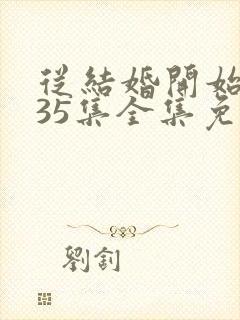 從結婚開始
35集全集免
劉釗